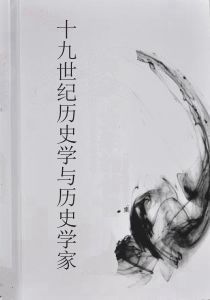 十九世纪历史学与历史学家